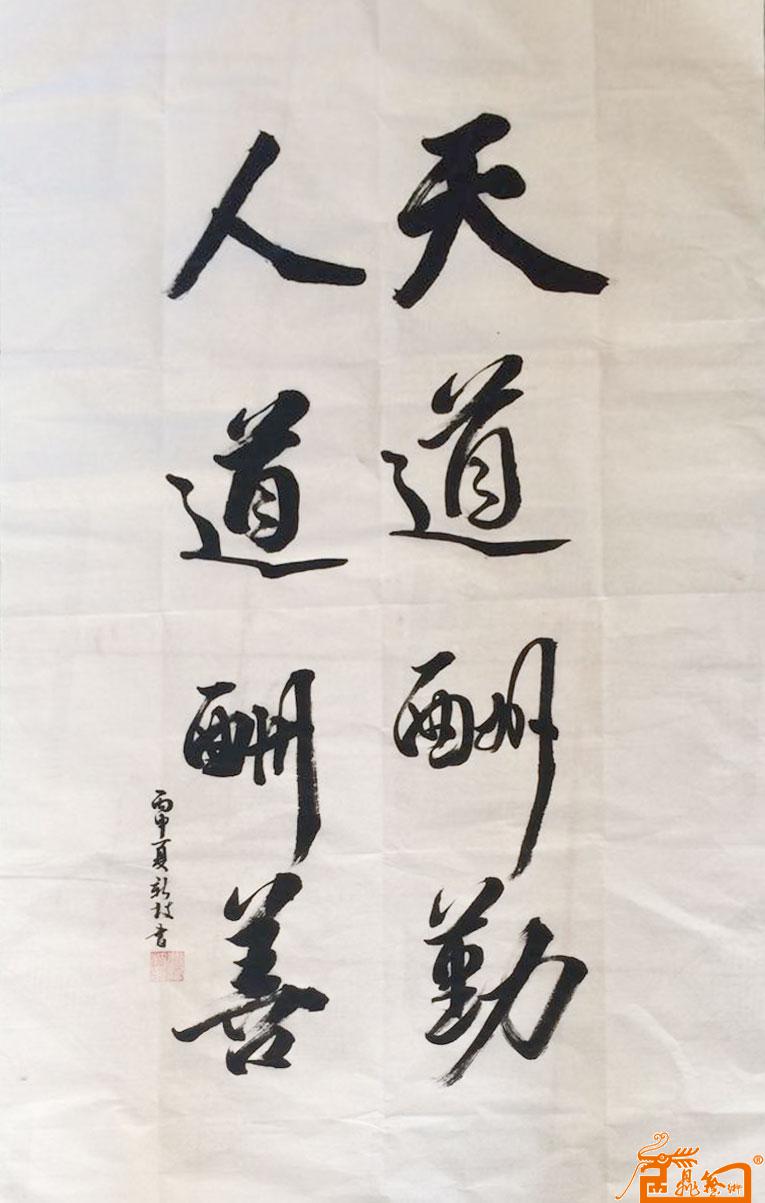 天道酬勤
人道酬善
丙申夏